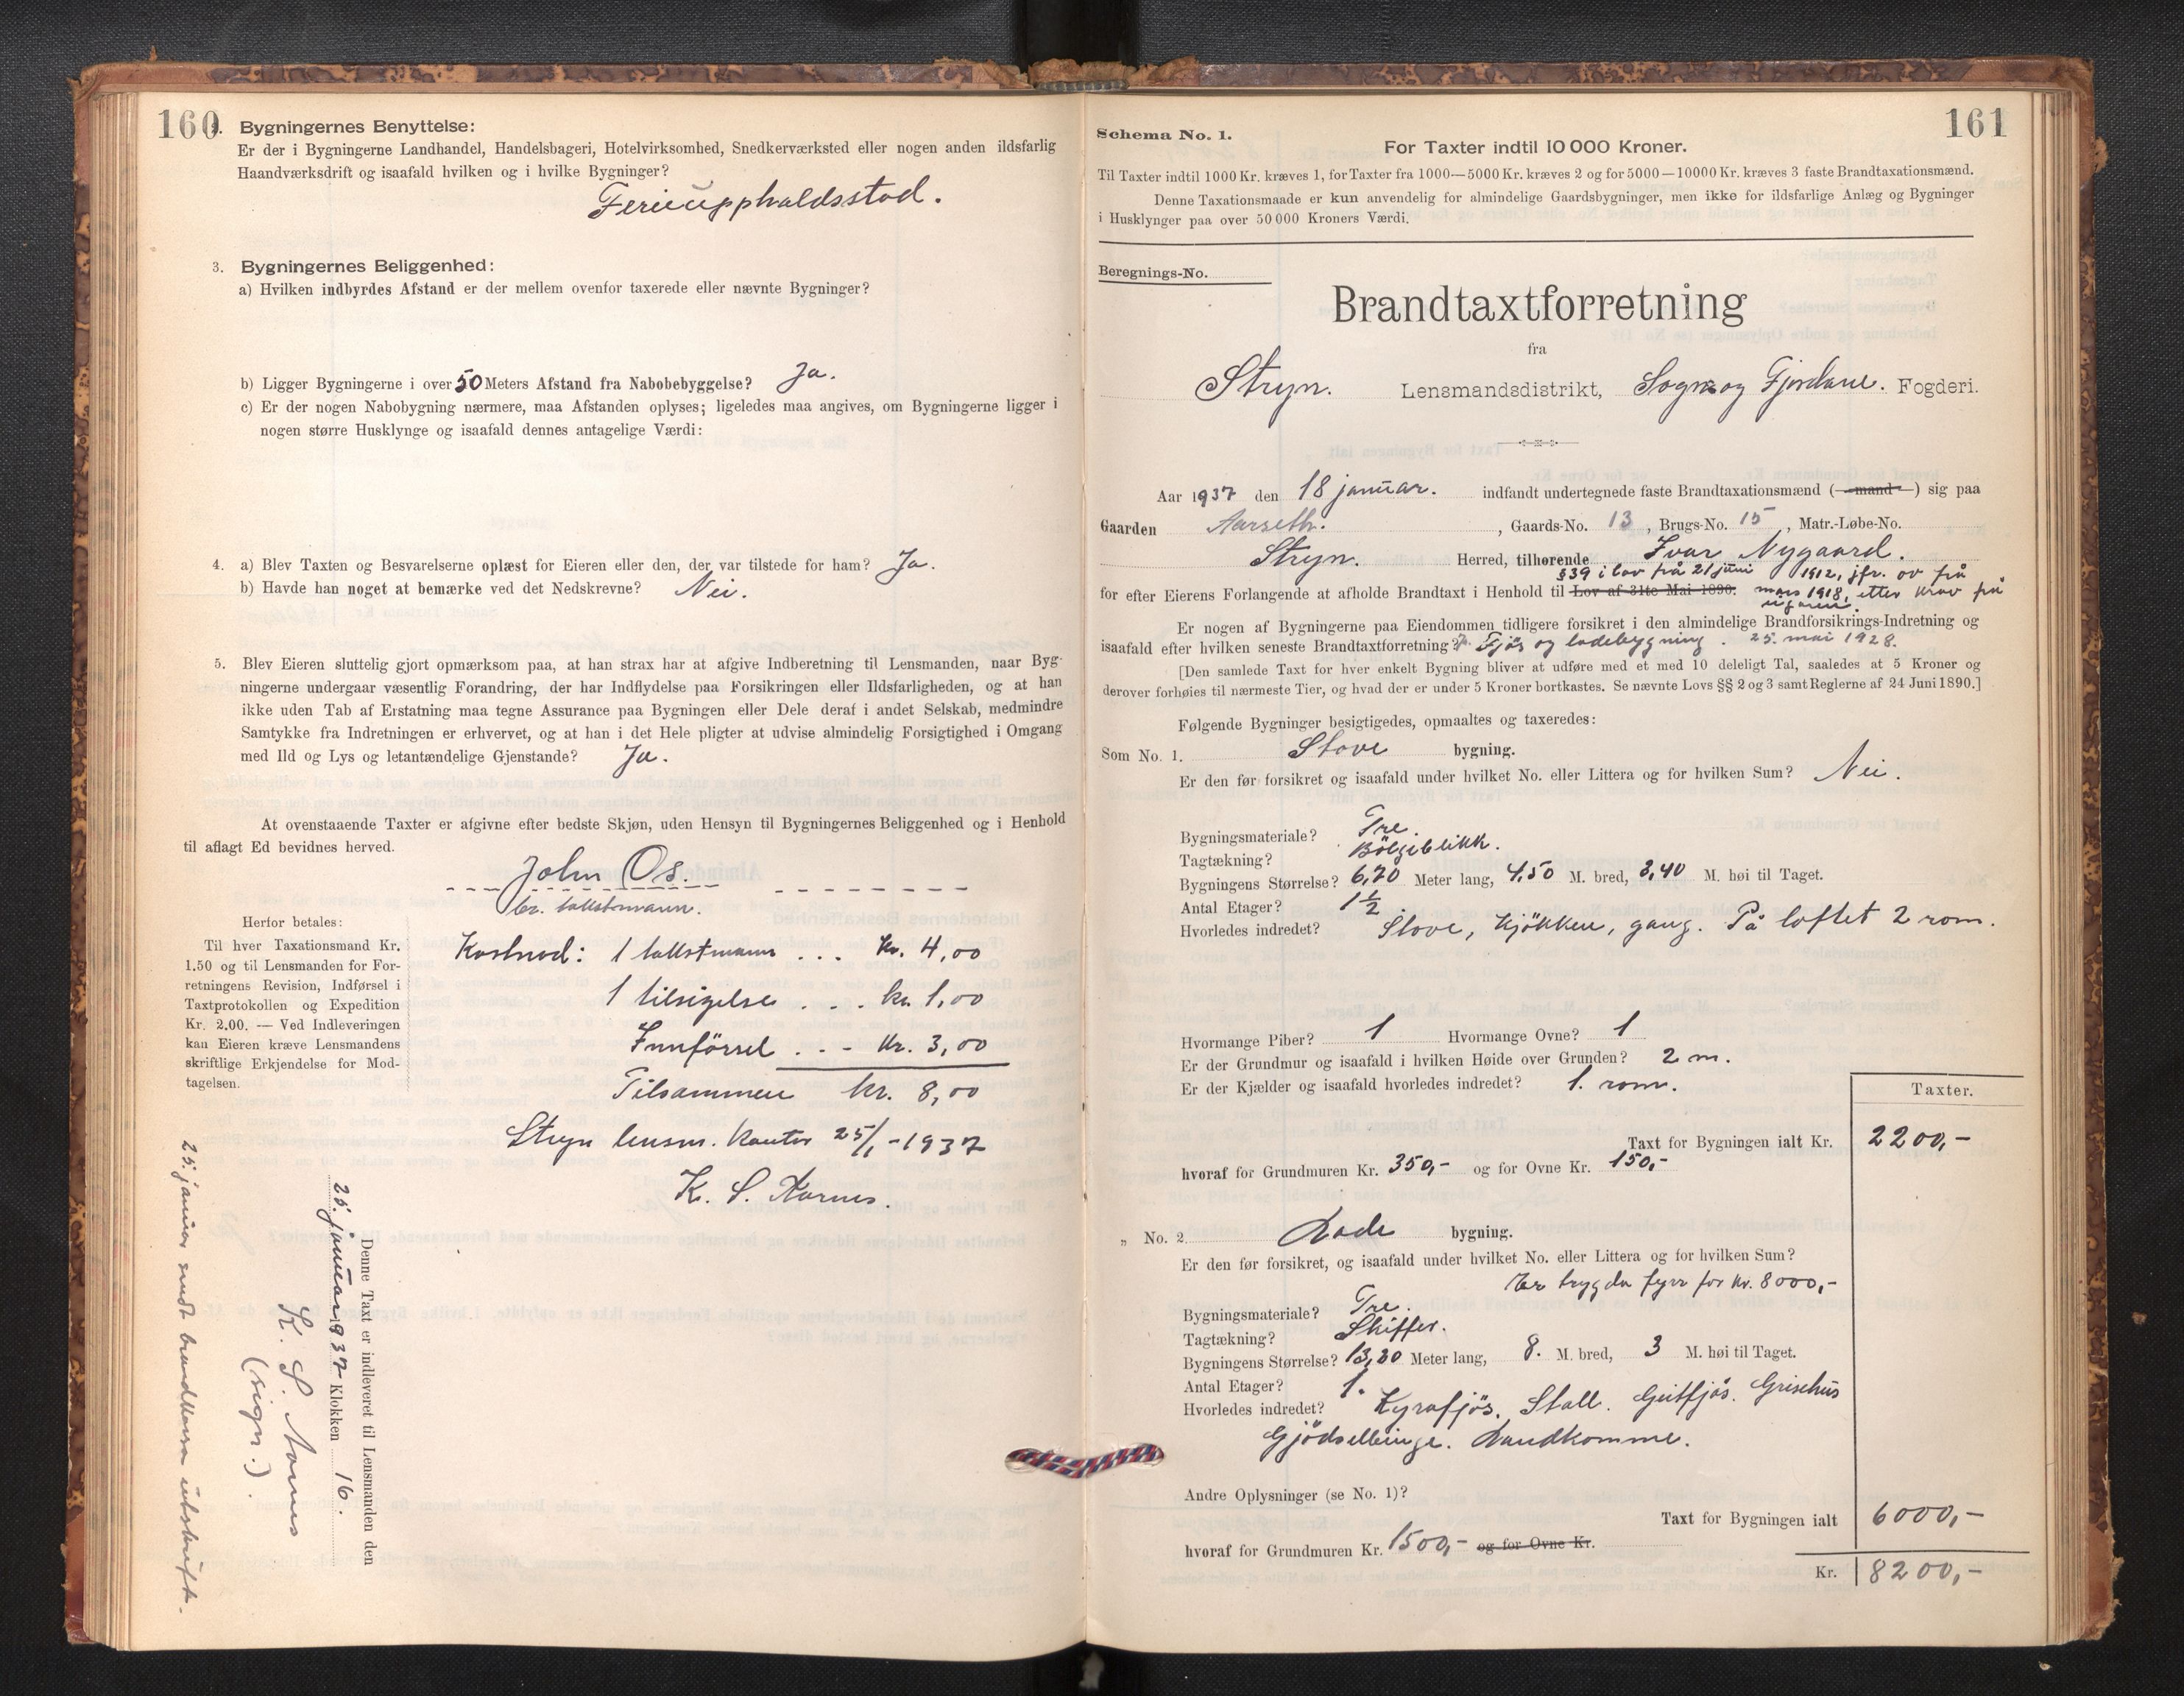 160
2. Bygningernes Benyttelse:
Er der i Bygningerne Landhandel, Handelsbageri, Hotelvirksomhed, Snedkerværksted eller nogen anden ildsfarlig
Haandværksdrift og isaafald hvilken og i hvilke Bygninger?
Ferieupphaldsstad.
3. Bygningernes Beliggenhed:
a) Hvilken indbyrdes Afstand er der mellem ovenfor taxerede eller nævnte Bygninger?
b) Ligger Bygningerne i over 50 Meters Afstand fra Nabobebyggelse? Ja.
c) Er der nogen Nabobygning nærmere, maa Afstanden oplyses; ligeledes maa angives, om Bygningerne ligger i
nogen større Husklynge og isaafald dennes antagelige Værdi:
4. a) Blev Taxten og Besvarelserne oplæst for Eieren eller den, der var tilstede for ham? Ja.
b) Havde han noget at bemærke ved det Nedskrevne? Nei.
5. Blev Eieren sluttelig gjort opmærksom paa, at han strax har at afgive Indberetning til Lensmanden, naar Byg-
ningerne undergaar væsentlig Forandring, der har Indflydelse paa Forsikringen eller Ildsfarligheden, og at han
ikke uden Tab af Erstatning maa tegne Assurance paa Bygningen eller Dele deraf i andet Selskab, medmindre
Samtykke fra Indretningen er erhvervet, og at han i det Hele pligter at udvise almindelig Forsigtighed i Omgang
med Ild og Lys og letantændelige Gjenstande? Ja.
At ovenstaaende Taxter er afgivne efter bedste Skjøn, uden Hensyn til Bygningernes Beliggenhed og i Henhold
til aflagt Ed bevidnes herved.
John Os.
br. takstmann.
Herfor betales:
Til hver Taxationsmand Kr.
1.50 og til Lensmanden for For-
retningens Revision, Indførsel i
Taxtprotokollen og Expedition
Kr. 2.00. — Ved Indleveringen
kan Eieren kræve Lensmandens
skriftlige Erkjendelse for Mod-
tagelsen.
Kostnad: 1 takstmann ... Kr. 4,00
1 tilsigelse ... kr. 1,00
Innförsel ... Kr. 3,00
Tilsammen kr. 8,00
Stryn lensm. kontor 25/1-1937
K. S. Aarnes.
Denne Taxt er indleveret til Lensmanden den
25. januar 1937 Klokken 16.
K. S. Aarnes
(sign.)
25. januar sendt brandkassa utskrift.
161
Schema No. 1.
For Taxter indtil 10 000 Kroner.
Til Taxter indtil 1000 Kr. kræves 1, for Taxter fra 1000—5000 Kr. kræves 2 og for 5000—10000 Kr. kræves 3 faste Brandtaxationsmænd.
Denne Taxationsmaade er kun anvendelig for almindelige Gaardsbygninger, men ikke for ildsfarlige Anlæg og Bygninger
i Husklynger paa over 50 000 Kroners Værdi.
Beregnings-No.
Brandtaxtforretning
fra
Stryn. Lensmandsdistrikt, Sogn og Fjordane. Fogderi.
Aar 1937 den 18 januar. indfandt undertegnede faste Brandtaxationsmænd (mand) sig paa
Gaarden Aarseth., Gaards-No. 13, Brugs-No. 15, Matr.-Løbe-No.
Stryn. Herred, tilhørende Ivar Nygaard.
§ 39 i lov frå 21 juni 1912, jfr. ov frå
for efter Eierens Forlangende at afholde Brandtaxt i Henhold til Lov af 31te Mai 1890. mars 1918, etter krav frå
eigaren.
Er nogen af Bygningerne paa Eiendommen tidligere forsikret i den almindelige Brandforsikrings-Indretning og
isaafald efter hvilken seneste Brandtaxtforretning? Ja. Fjös og ladebygning. 25. mai 1928.
[Den samlede Taxt for hver enkelt Bygning bliver at udføre med et med 10 deleligt Tal, saaledes at 5 Kroner og
derover forhøies til nærmeste Tier, og hvad der er under 5 Kroner bortkastes. Se nævnte Lovs §§ 2 og 3 samt Reglerne af 24 Juni 1890.]
Følgende Bygninger besigtigedes, opmaaltes og taxeredes:
Som No. 1. Stove bygning.
Er den før forsikret og isaafald under hvilket No. eller Littera og for hvilken Sum? Nei.
Bygningsmateriale? Tre.
Tagtækning? Bölgeblikk.
Bygningens Størrelse? 6,70 Meter lang, 4,50 M. bred, 3,40 M. høi til Taget.
Antal Etager? 1 1/2
Hvorledes indredet? Stove, kjökken, gang. På loftet 2 rom.
Hvormange Piber? 1 Hvormange Ovne? 1
Er der Grundmur og isaafald i hvilken Høide over Grunden? 2 m.
Er der Kjælder og isaafald hvorledes indredet? 1. rom.
Taxter.
Taxt for Bygningen ialt Kr. 2200,-
hvoraf for Grundmuren Kr. 350,- og for Ovne Kr. 150,-
„ No. 2 Lade bygning.
Er den før forsikret, og isaafald under hvilket No. eller Littera og for hvilken Sum?
Er trygda fyrr for kr. 8000,-
Bygningsmateriale? Tre.
Tagtækning? Skiffer.
Bygningens Størrelse? 13,20 Meter lang, 8. M. bred, 3 M. høi til Taget.
Antal Etager? 1.
Hvorledes indredet? Kyrafjös. Stall. Geitfjös. Grisehus
Gjödselbinge. Landkomme.
Andre Oplysninger (se No. 1)?
Taxt for Bygningen ialt 6000,-
hvoraf for Grundmuren Kr. 1500,- og for Ovne Kr.
Kr. 8200,-